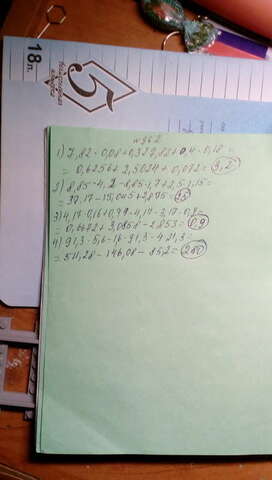 18л.
5
№962
1) 7,82 · 0,08 + 0,32 · 7,82 + 0,4 · 0,18 =
= 0,6256 + 2,5024 + 0,072 = 3,2
2) 8,85 · 4,2 - 8,85 · 1,7 + 2,5 · 1,15 =
= 37,17 - 15,045 + 2,875 = 25
3) 4,17 · 0,16 + 0,74 · 4,17 - 3,17 · 0,9 =
= 0,6672 + 3,0858 - 2,853 = 0,9
4) 91,3 · 5,6 - 1,6 · 91,3 - 4 · 21,3
= 511,28 - 146,08 - 85,2 = 280